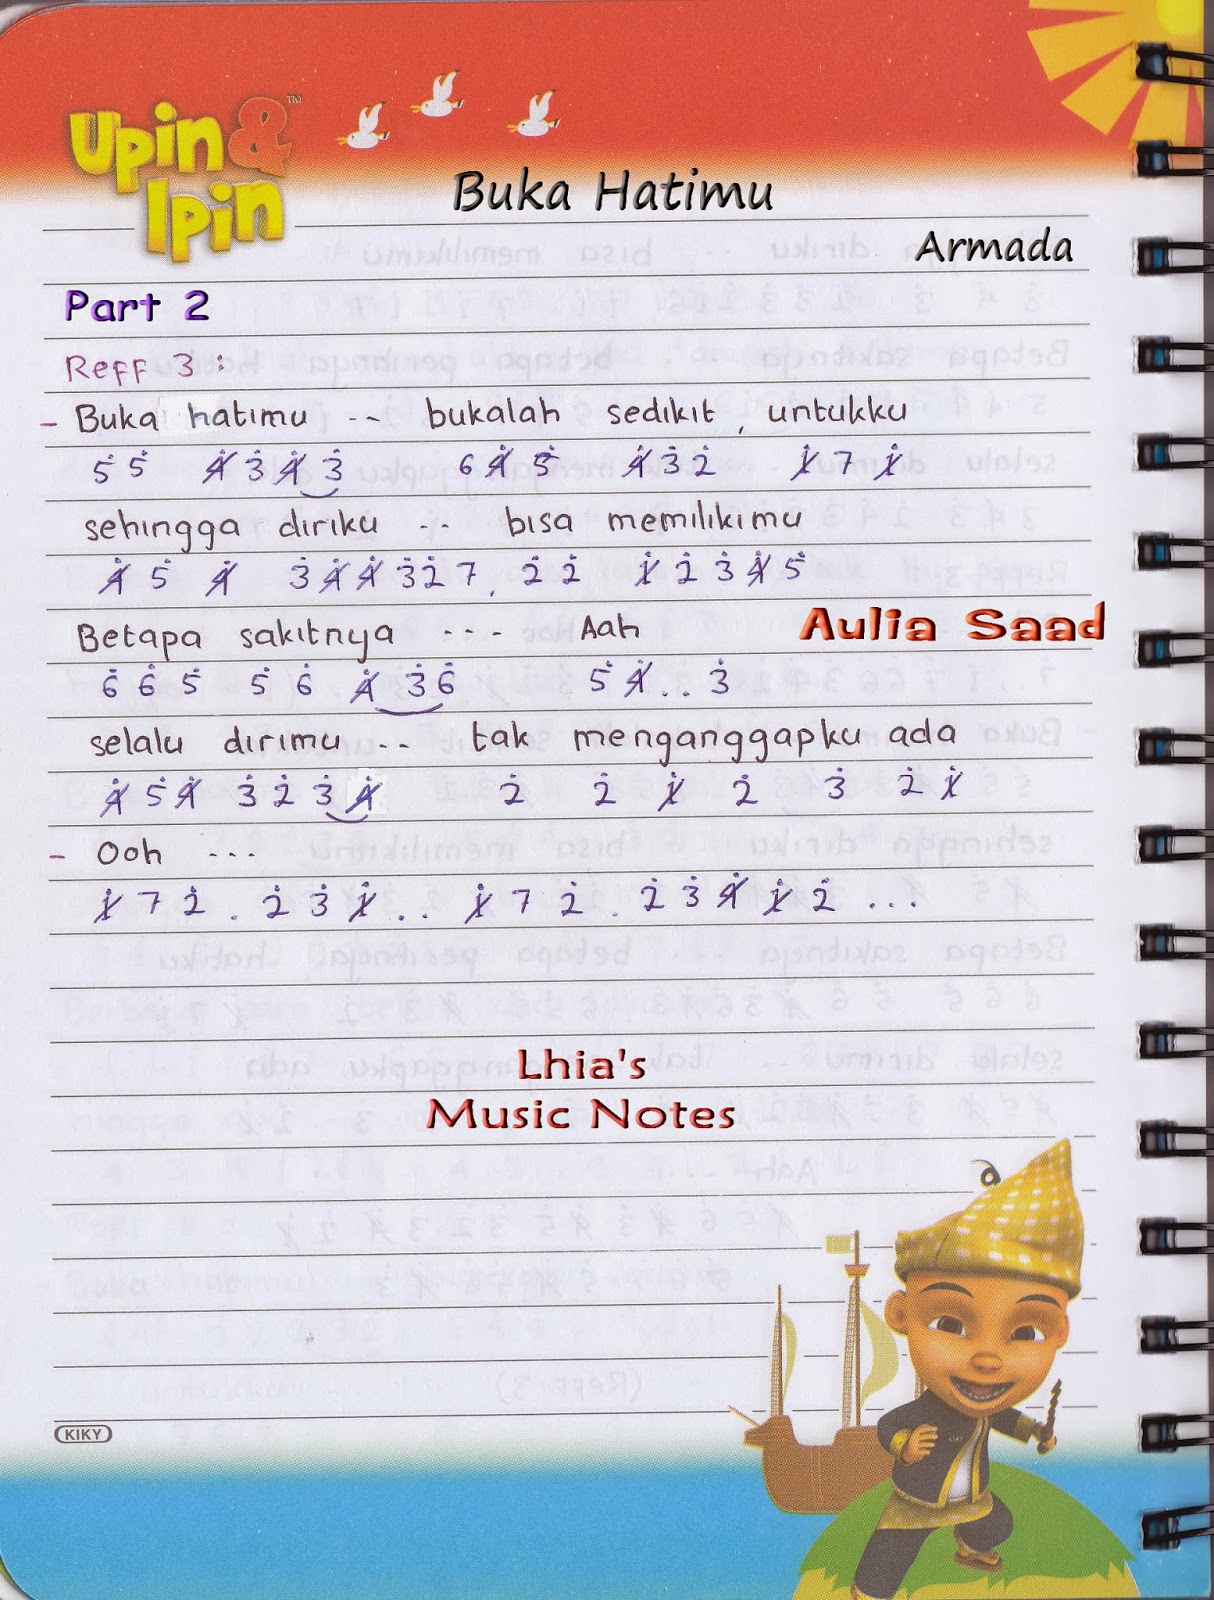 Upin & Ipin™
Buka Hatimu
Armada
Part 2
Reff 3 :
- Buka hatimu -- bukalah sedikit, untukku
5̇ 5̇ 4̸̇ 3̇ 4̸̇ 3̇ 6 4̸̇ 5̇ 4̸̇ 3̇ 2̇ 1̸̇ 7 1̸̇
sehingga diriku -- bisa memilikimu
4̸̇ 5̇ 4̸̇ 3̇ 4̸̇ 4̸̇ 3̇ 2̇ 7 . 2̇ 2̇ 1̸̇ 2̇ 3̇ 4̸̇ 5̇
Betapa sakitnya --- Aah
Aulia Saad
6̇ 6̇ 5̇ 5̇ 6̇ 4̸̇ 3̇ 6̇ 5̇ 4̸̇ . . 3̇
selalu dirimu -- tak menganggapku ada
4̸̇ 5̇ 4̸̇ 3̇ 2̇ 3̇ 4̸̇ 2̇ 2̇ 1̸̇ 2̇ 3̇ 2̇ 1̸̇
- Ooh ---
1̸̇ 7 2̇ . 2̇ 3̇ 1̸̇ . . 1̸̇ 7 2̇ . 2̇ 3̇ 4̸̇ 1̸̇ 2̇ ...
Lhia's
Music Notes
KIKY